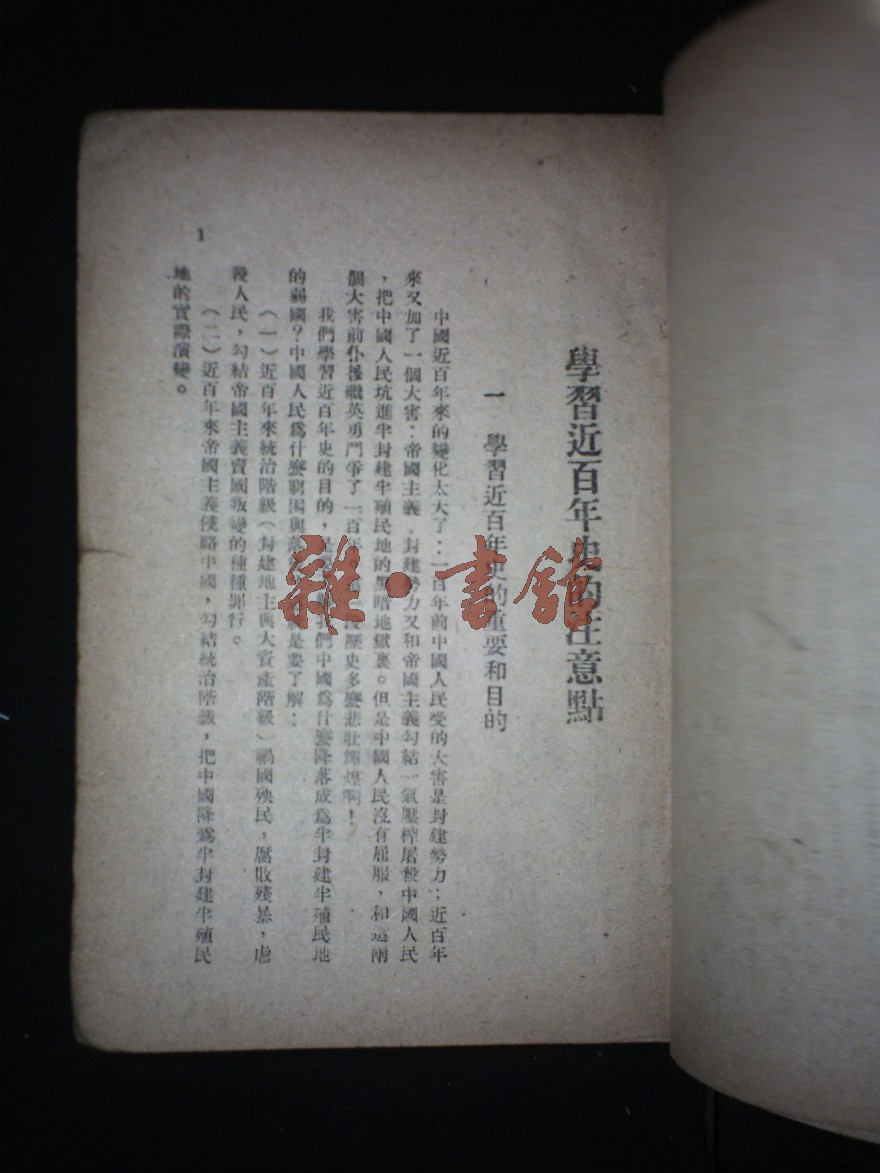 學習近百年史的注意點
一 學習近百年史的重要和目的
中國近百年來的變化太大了：一百年前中國人民受的大害是封建勢力；近百年
來又加了一個大害：帝國主義，封建勢力又和帝國主義勾結一氣壓榨屠殺中國人民
，把中國人民坑進半封建半殖民地的黑暗地獄裏。但是中國人民沒有屈服，和這兩
個大害前仆後繼英勇鬥爭了一百年 歷史多麼悲壯輝煌啊！
我們學習近百年史的目的， 我們中國爲什麼降落成爲半封建半殖民地
的弱國？中國人民爲什麼窮困與落 是要了解：
（一）近百年來統治階級（封建地主與大資產階級）禍國殃民，腐敗殘暴，虐
殺人民，勾結帝國主義賣國叛變的種種罪行。
（二）近百年來帝國主義侵略中國，勾結統治階級，把中國降爲半封建半殖民
地的實際演變。
1
雜·書館